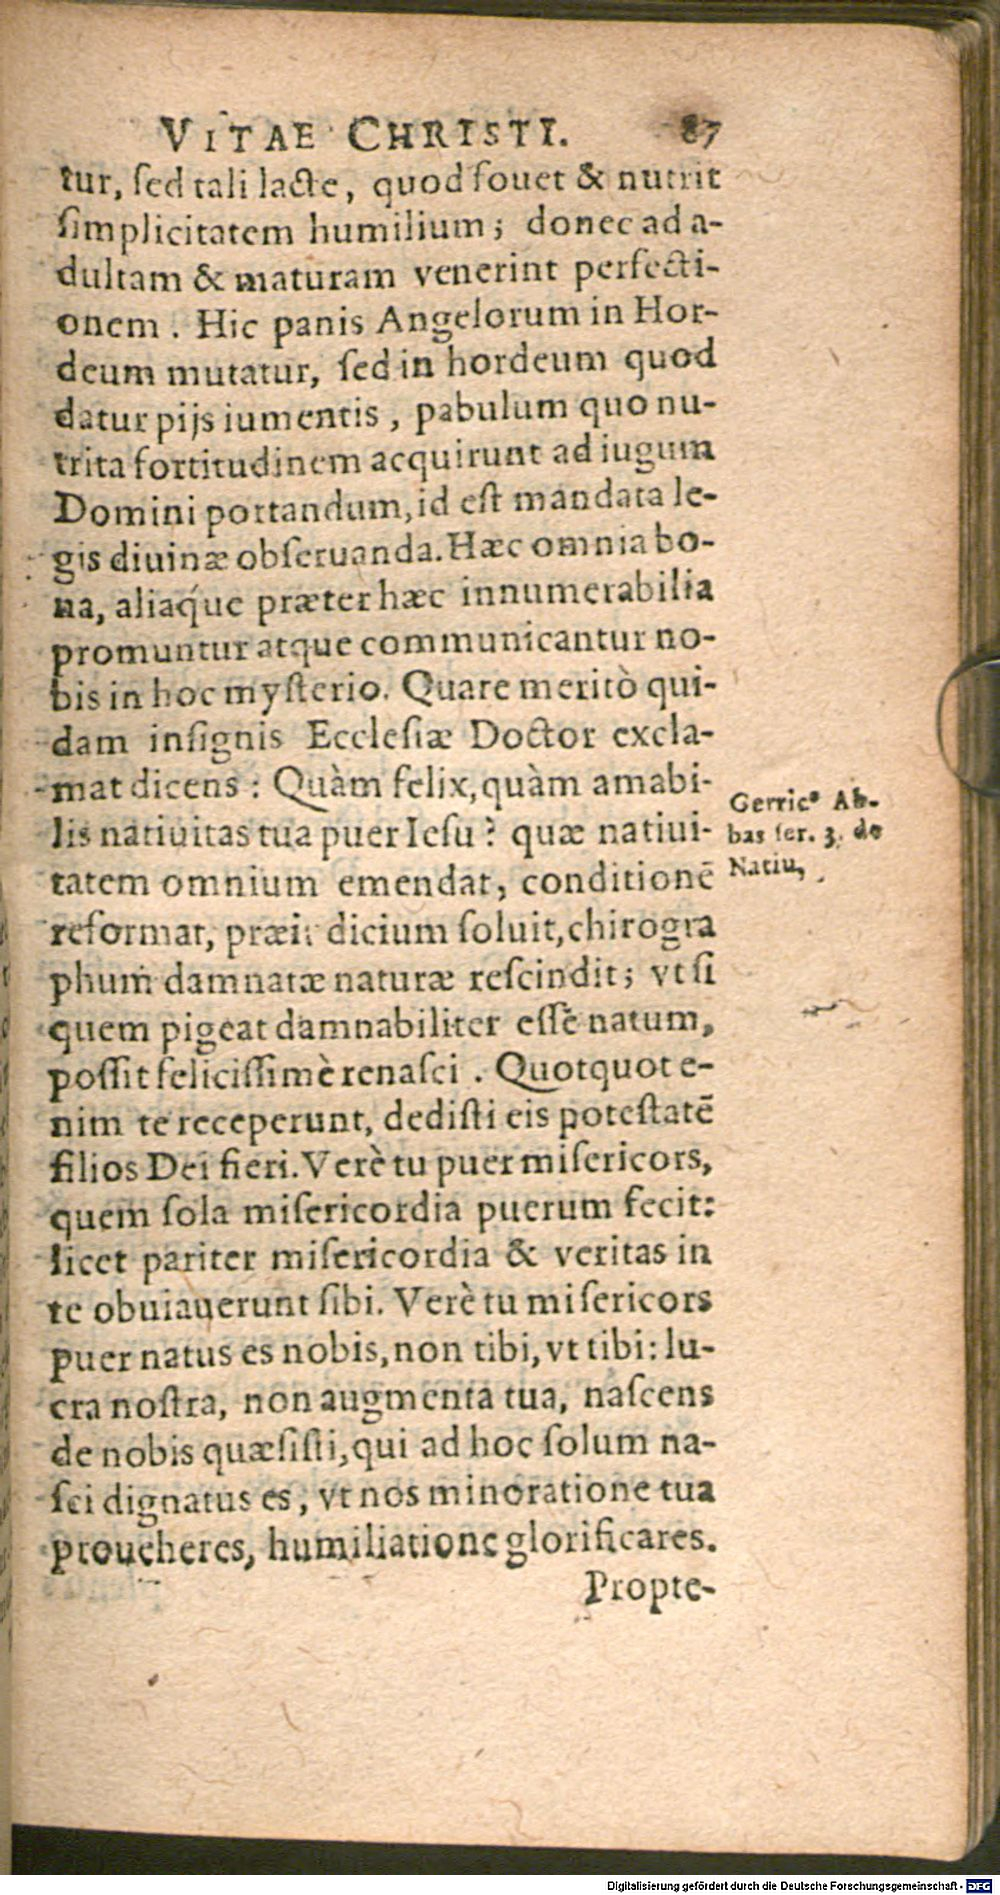 VITAE CHRISTI. 87
tur, ſed tali lacte, quod fouet & nutrit
ſimplicitatem humilium; donec ad a-
dultam & maturam venerint perfecti-
onem. Hic panis Angelorum in Hor-
deum mutatur, ſed in hordeum quod
datur pijs iumentis, pabulum quo nu-
trita fortitudinem acquirunt ad iugum
Domini portandum, id eſt mandata le-
gis diuinæ obſeruanda. Hæc omnia bo-
na, aliaq́ue præter hæc innumerabilia
promuntur atque communicantur no-
bis in hoc myſterio. Quare meritò qui-
dam inſignis Eccleſiæ Doctor excla-
mat dicens: Quàm felix, quàm amabi-
lis natiuitas tua puer Ieſu? quæ natiui-
tatem omnium emendat, conditionē
reformat, præiudicium ſoluit, chirogra
phum damnatæ naturæ reſcindit; vt ſi
quem pigeat damnabiliter eſſe natum,
poſſit feliciſſimè renaſci. Quotquot e-
nim te receperunt, dediſti eis poteſtatē
filios Dei fieri. Verè tu puer miſericors,
quem ſola miſericordia puerum fecit:
licet pariter miſericordia & veritas in
te obuiauerunt ſibi. Verè tu miſericors
puer natus es nobis, non tibi, vt tibi: lu-
cra noſtra, non augmenta tua, naſcens
de nobis quæſiſti, qui ad hoc ſolum na-
ſci dignatus es, vt nos minoratione tua
proueheres, humiliatione glorificares.
Propte-
Gerricꝰ Ab-
bas ſer. 3. de
Natiu,
Digitalisierung gefördert durch die Deutsche Forschungsgemeinschaft - DFG